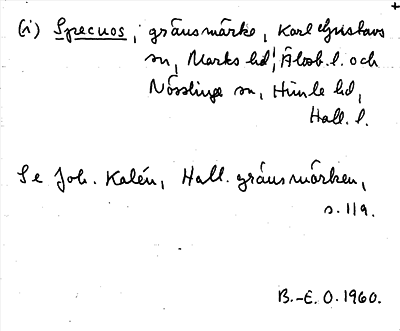 (i) Specuos, gränsmärke, Karl Gustavs
sn, Marks hd, Älvsb. l. och
Nösslinge sn, Himle hd,
Hall. l.
Se Joh. Kalén, Hall. gränsmärken,
s. 119.
B.-E. O. 1960.